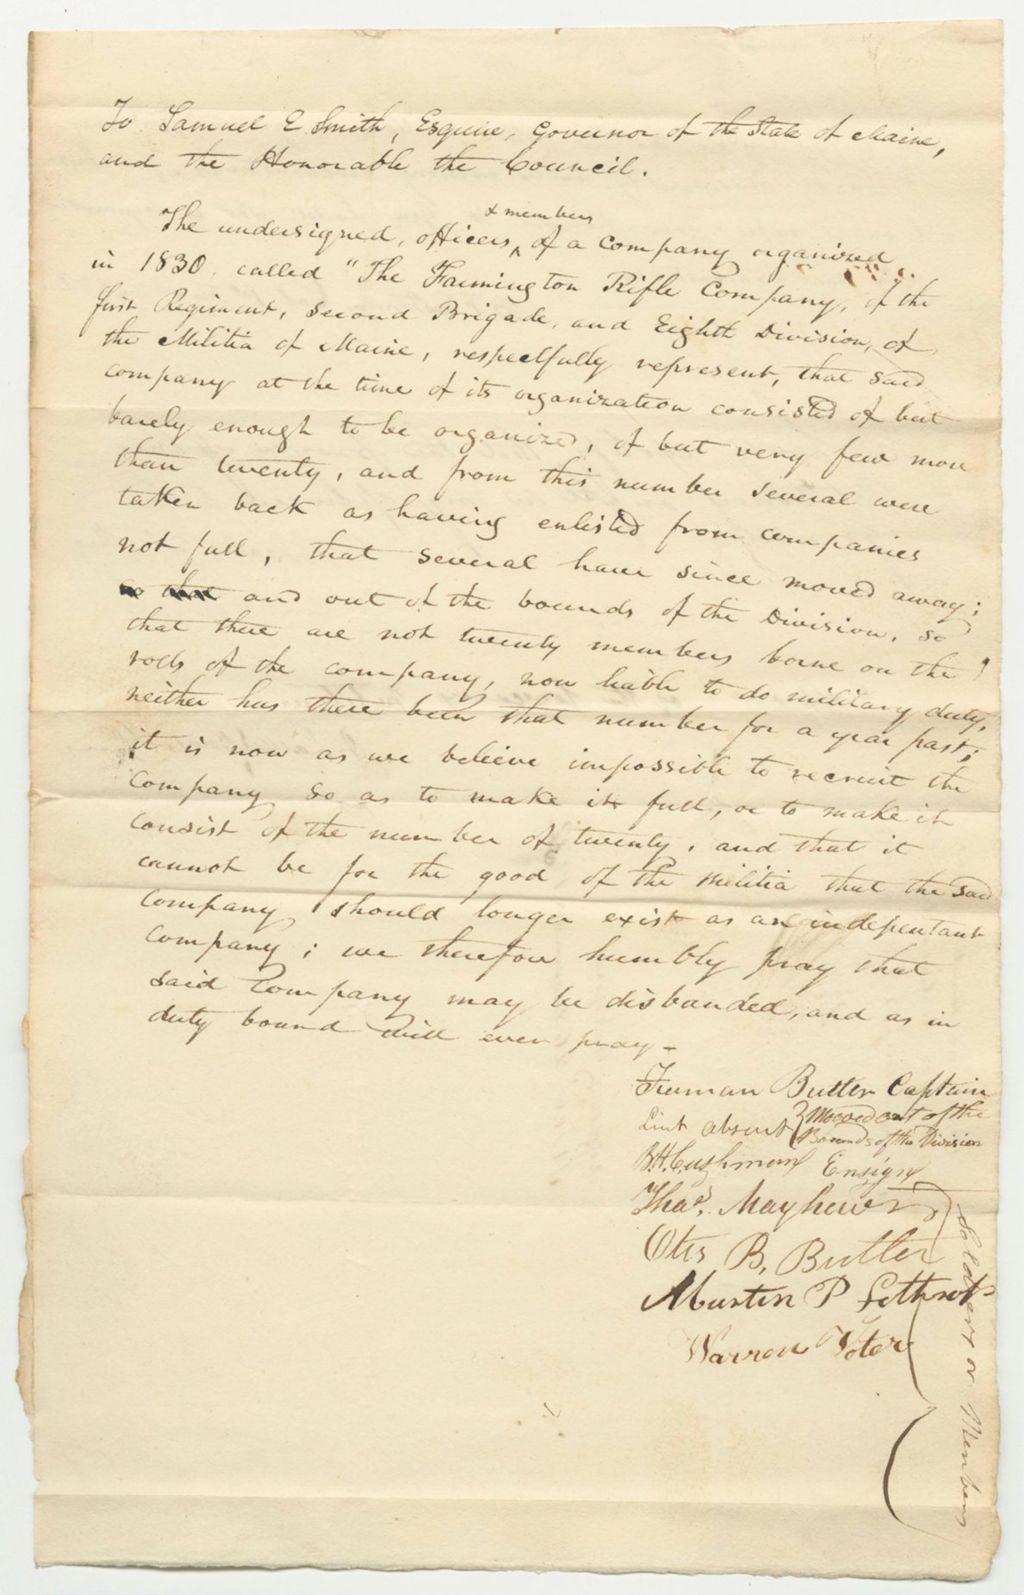 To Samuel E Smith, Esquire, Governor of the State of Maine,
and the Honorable the Council.
& members
The undersigned, officers ^ of a company organized
in 1830, called "The Farmington Rifle Company, of the
first Regiment, Second Brigade, and Eighth Division, of
the Militia of Maine, respectfully represent, that said
company at the time of its organization consisted of but
barely enough to be organized, of but very few more
than twenty, and from this number several were
taken back as having enlisted from companies
not full, that several have since moved away;
so that and out of the bounds of the Division, so
that there are not twenty members borne on the
rolls of the company, now liable to do military duty,
neither has there been that number for a year past;
it is now as we believe impossible to recruit the
company so as to make it full, or to make it
consist of the number of twenty, and that it
cannot be for the good of the Militia that the said
company should longer exist as an indepentant
company; we therefore humbly pray that
said Company may be disbanded, and as in
duty bound will ever pray -
Truman Butler Captain
Lint absent } Mooved out of the
Bounds of the Division
B.H. Cushman Ensign
Thas. Mayhew
Otis B. Butler
Martin P Lethrop
Warren Voter
Soldiers or Members